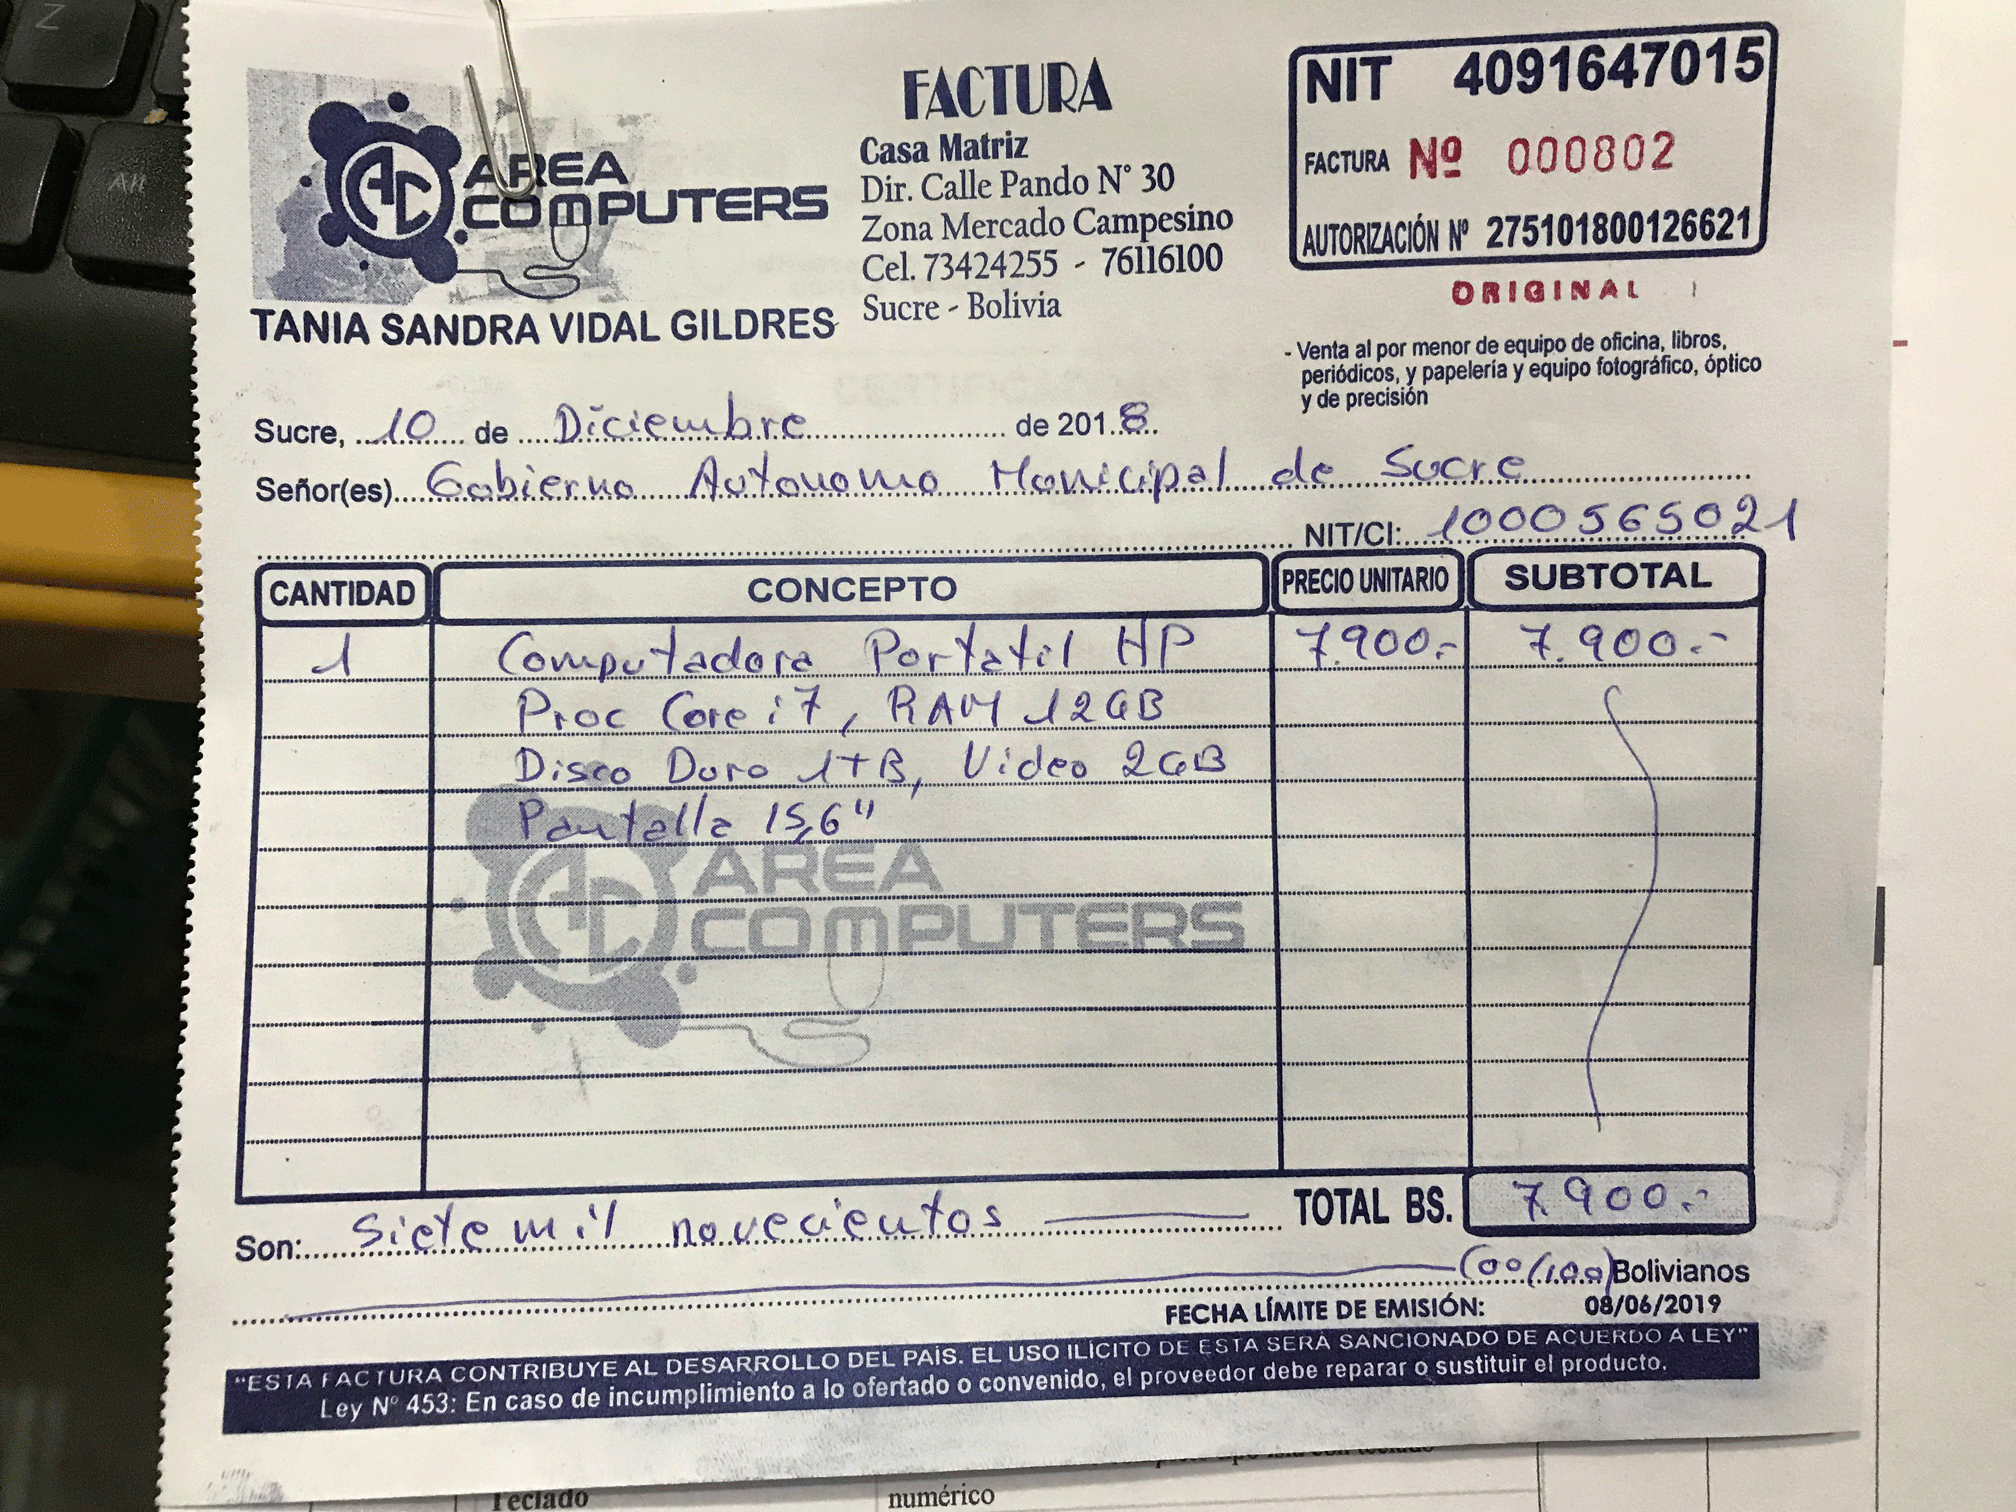 Z
Alt
AREA
COMPUTERS
TANIA SANDRA VIDAL GILDRES
FACTURA
Casa Matriz
Dir. Calle Pando N° 30
Zona Mercado Campesino
Cel. 73424255 - 76116100
Sucre - Bolivia
NIT 4091647015
FACTURA Nº 000802
AUTORIZACIÓN Nº 275101800126621
ORIGINAL
- Venta al por menor de equipo de oficina, libros,
periódicos, y papelería y equipo fotográfico, óptico
y de precisión
Sucre, 10 de Diciembre de 2018
Señor(es) Gobierno Autonomo Municipal de Sucre
NIT/CI: 1000565021
CANTIDAD CONCEPTO PRECIO UNITARIO SUBTOTAL
1 Computadora Portatil HP 7.900.- 7.900.-
Proc Core i7, RAM 12GB
Disco Duro 1TB, Video 2GB
Pantalla 15,6"
AREA
COMPUTERS
Son: Siete mil novecientos TOTAL BS. 7.900.-
(00/100) Bolivianos
FECHA LÍMITE DE EMISIÓN: 08/06/2019
"ESTA FACTURA CONTRIBUYE AL DESARROLLO DEL PAÍS. EL USO ILÍCITO DE ESTA SERÁ SANCIONADO DE ACUERDO A LEY"
Ley Nº 453: En caso de incumplimiento a lo ofertado o convenido, el proveedor debe reparar o sustituir el producto.
Teclado numérico